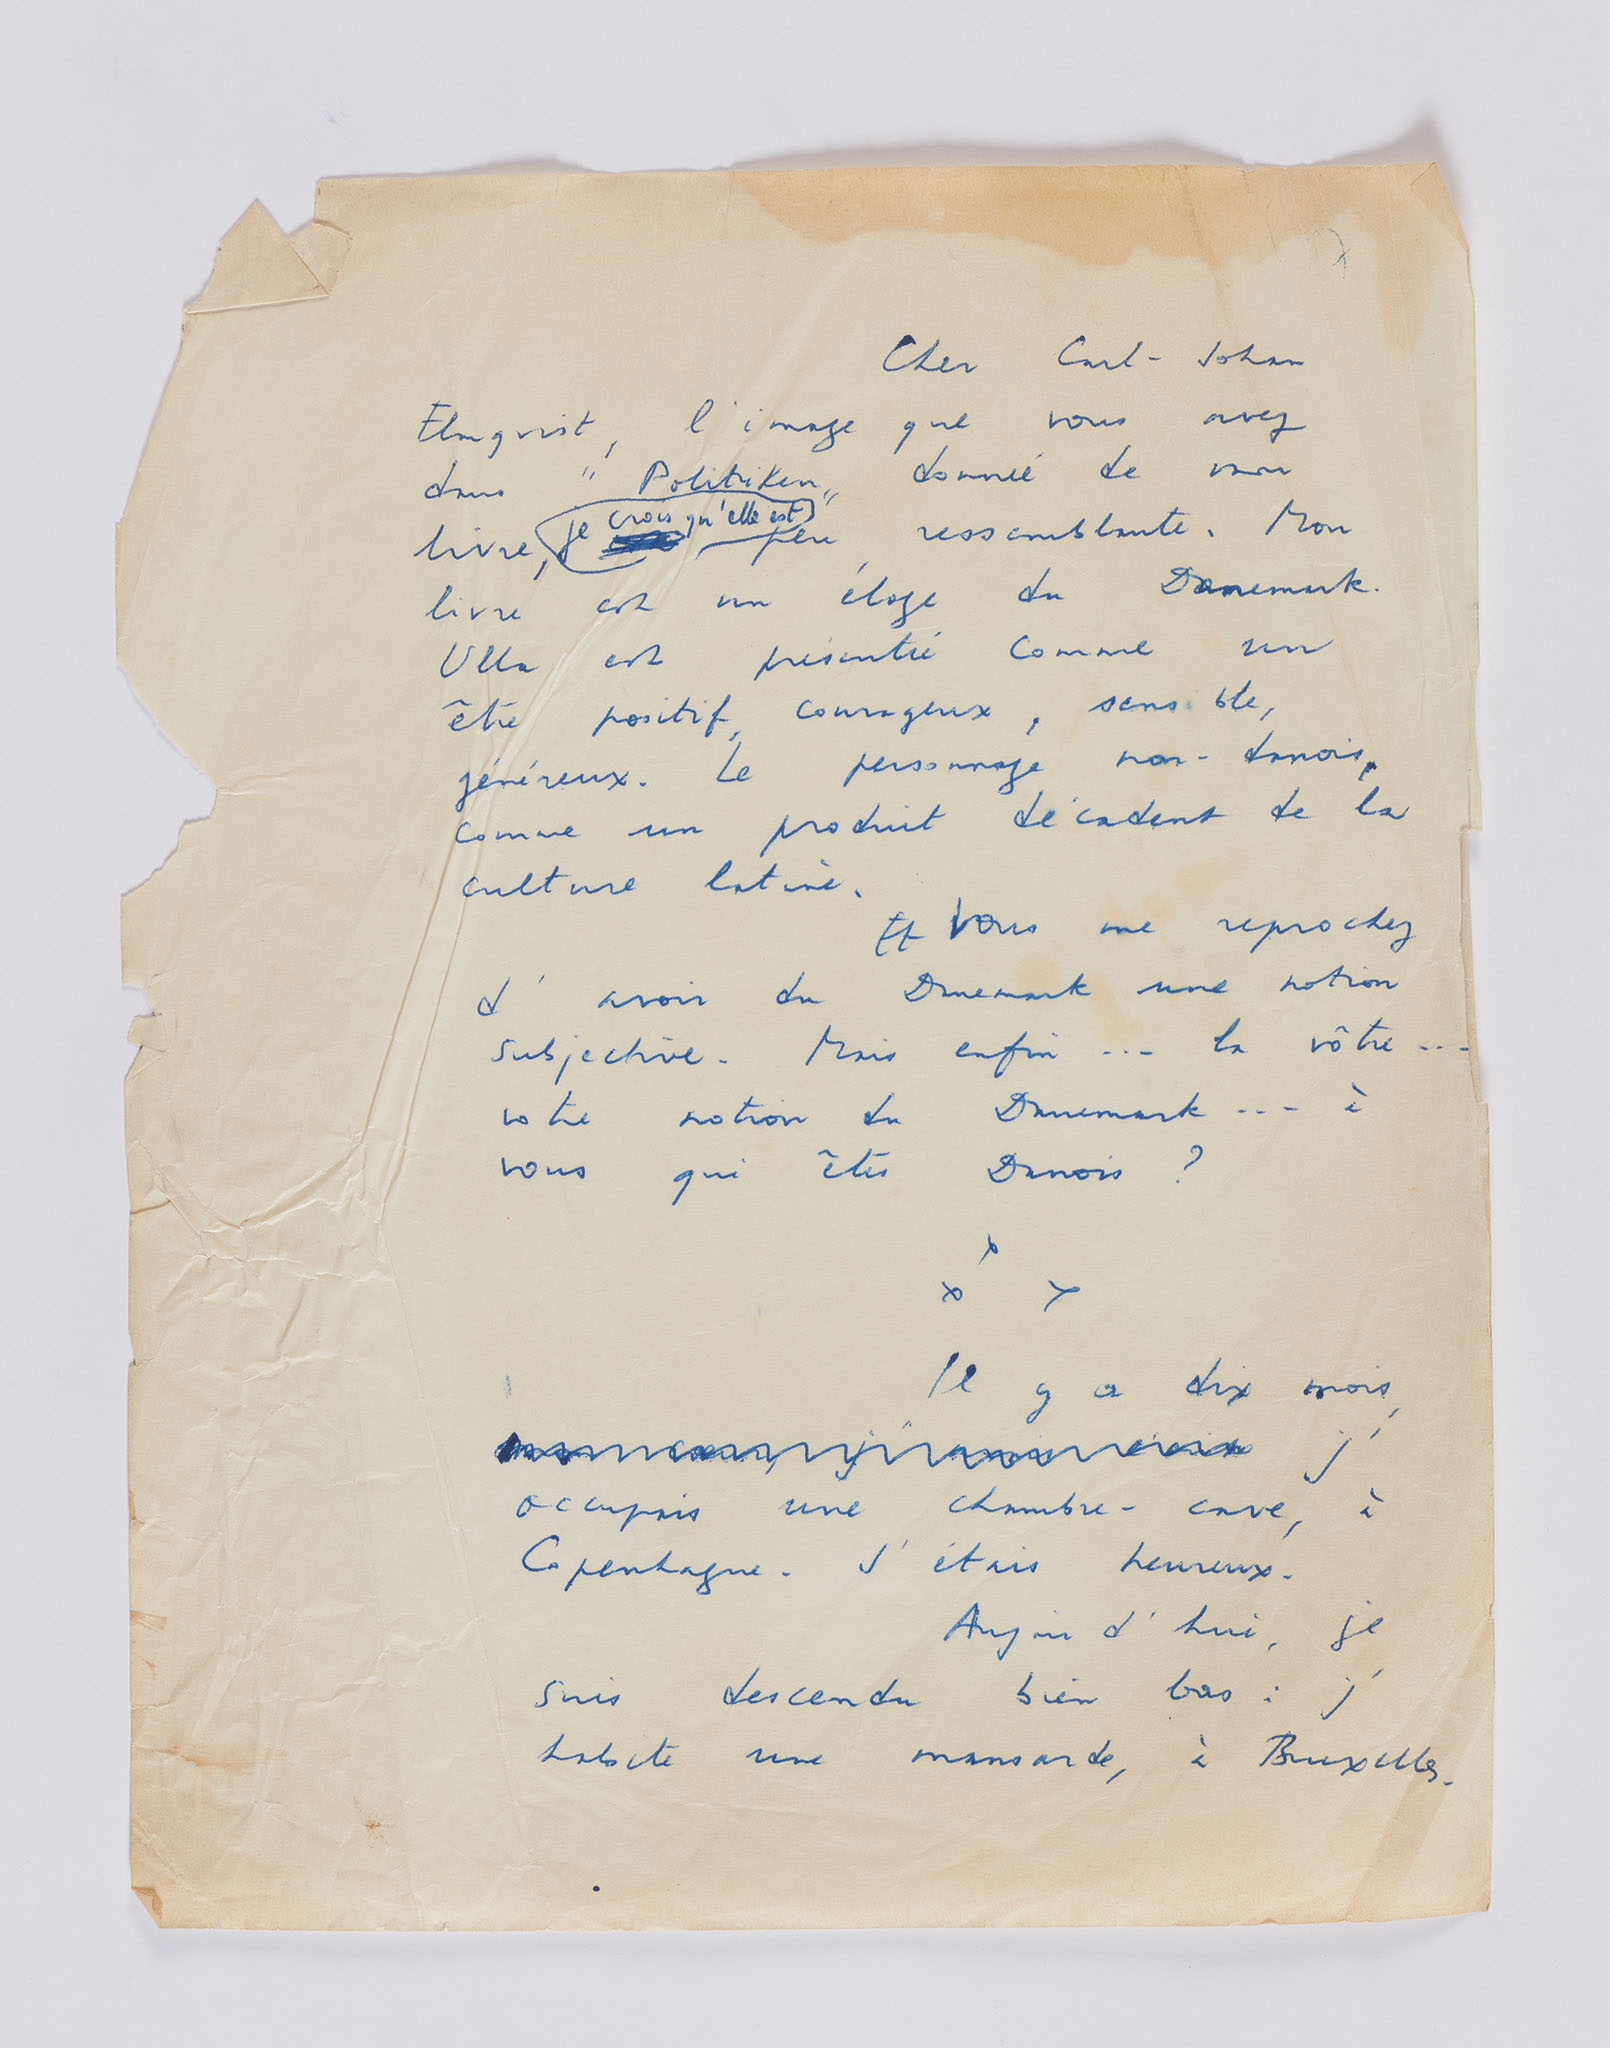 Cher Carl-Johan
Elmqvist, l'image que vous avez
dans "Politiken" donnée de mon
livre, je crois qu'elle est peu ressemblante. Mon
livre est un éloge du Danemark.
Ulla est présenté comme un
être positif, courageux, sensible,
généreux. Le personnage non-danois,
comme un produit décadent de la
culture latine.
Et Vous me reprochez
d'avoir du Danemark une notion
subjective. Mais enfin --- la vôtre ---
votre notion du Danemark --- à
vous qui êtes Danois ?
x
x x
Il y a dix mois,
j'
occupais une chambre-cave, à
Copenhague. J'étais heureux.
Aujourd'hui, je
suis descendu bien bas : j'
habite une mansarde, à Bruxelles.